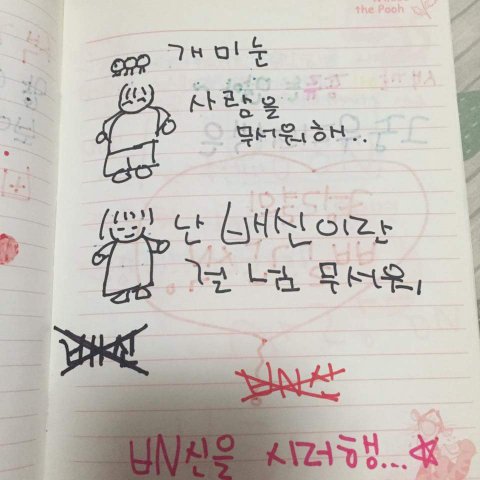 the Pooh
개미눈
사람을
무서워해..
난 배신이란
걸 넘 무서워,
배신
ㅂN신
ㅂN신을 시러행...☆